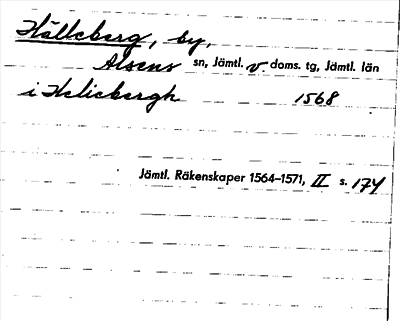 Hälleberg, by,
Alsens sn, Jämtl. v doms. tg, Jämtl. län
i Helieberghe 1568
Jämtl. Räkenskaper 1564–1571, II s. 174